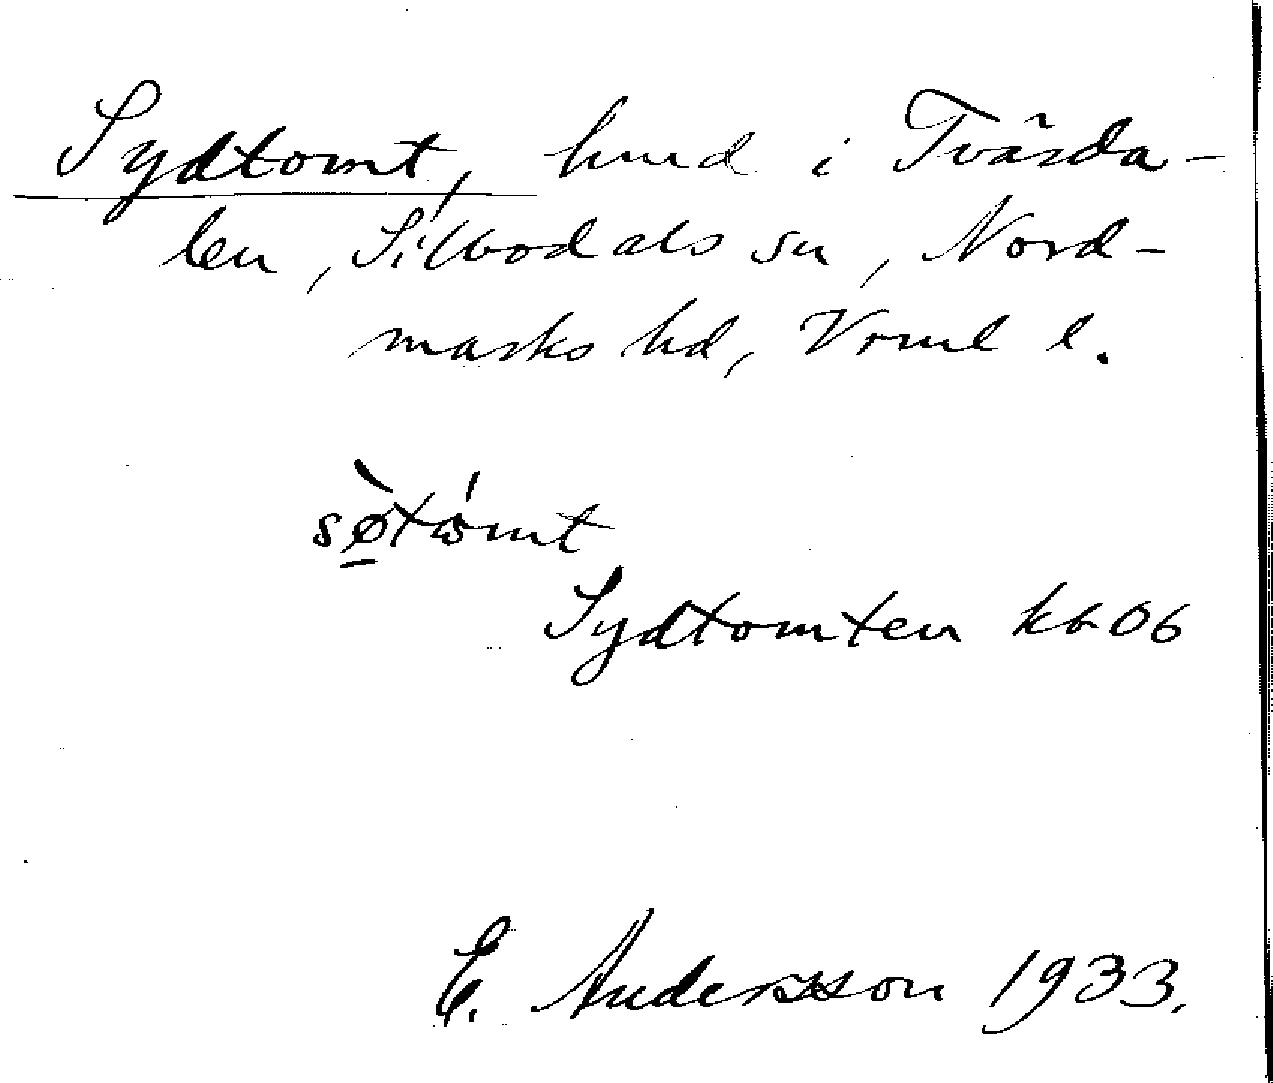 Sydtomt, hmd i Tvärda-
len, Silbodals sn, Nord-
marks hd, Vrml l.
sø̱̀tώmt
Sydtomten kb 06
E. Andersson 1933.